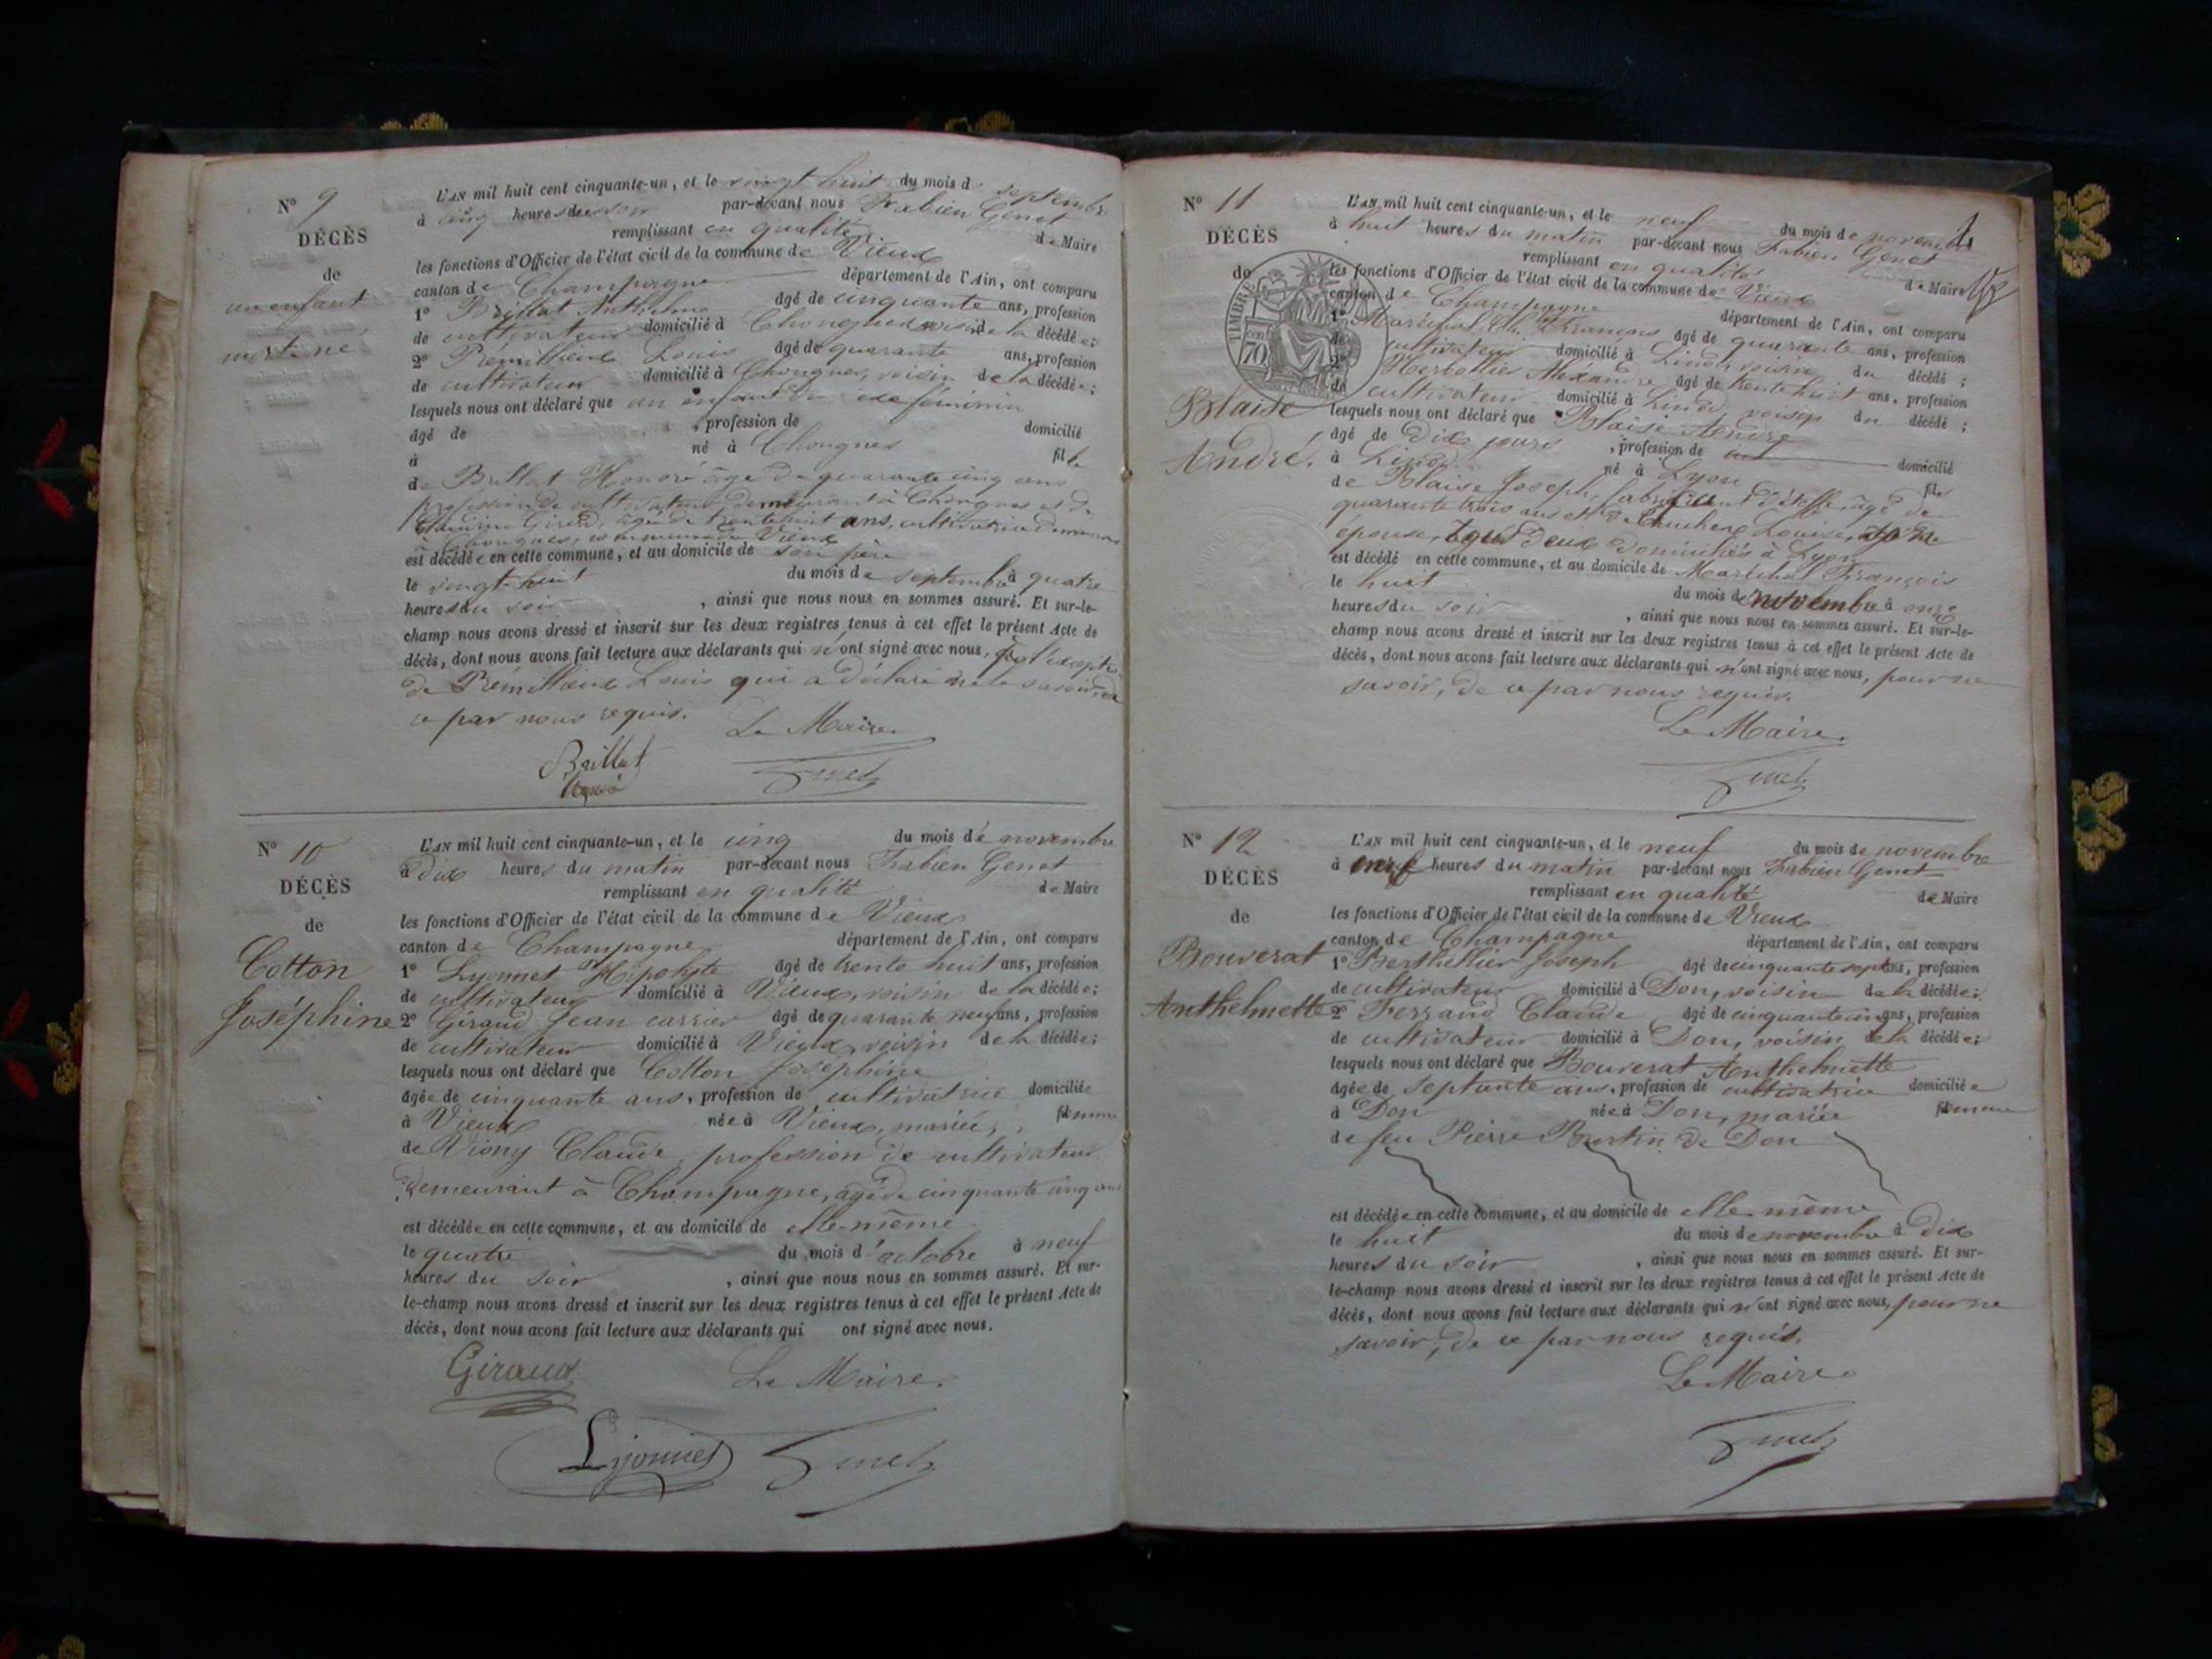 N° 9
DÉCÈS
de
un enfant
mort-né
L'AN mil huit cent cinquante-un, et le vingt huit du mois de septembre
à cinq heures du soir par-devant nous Fabien Genet
remplissant en qualité de Maire
les fonctions d'Officier de l'état civil de la commune de Vieux
canton de Champagne département de l'Ain, ont comparu
1° Brillat Anthelme âgé de cinquante ans, profession
de cultivateur domicilié à Chongnes voisin de la décédée;
2° Premillieux Louis âgé de quarante ans, profession
de cultivateur domicilié à Chongnes, voisin de la décédée;
lesquels nous ont déclaré que un enfant du sexe féminin
âgé de , profession de domicilié
à né à Chongnes fille
de Brillat Honoré âgé de quarante cinq ans
profession de cultivateur demeurant à Chongnes et de
Claudine Giroud, âgée de trente huit ans, cultivatrice demeurant
à Chongnes, commune de Vieux
est décédée en cette commune, et au domicile de son père
le vingt-huit du mois de septembre à quatre
heures du soir , ainsi que nous nous en sommes assuré. Et sur-le-
champ nous avons dressé et inscrit sur les deux registres tenus à cet effet le présent Acte de
décès, dont nous avons fait lecture aux déclarants qui n'ont signé avec nous, l'excepté
de Prémillieux Louis qui a déclaré ne le savoir de
ce par nous requis. Le Maire
Brillat Genet
Honoré
N° 10
DÉCÈS
de
Cotton
Joséphine
L'AN mil huit cent cinquante-un, et le cinq du mois de novembre
à dix heures du matin par-devant nous Fabien Genet
remplissant en qualité de Maire
les fonctions d'Officier de l'état civil de la commune de Vieux
canton de Champagne département de l'Ain, ont comparu
1° Lyonnet Hipolyte âgé de trente huit ans, profession
de cultivateur domicilié à Vieux, voisin de la décédée;
2° Giraud Jean carrier âgé de quarante neuf ans, profession
de cultivateur domicilié à Vieux, voisin de la décédée;
lesquels nous ont déclaré que Cotton Joséphine
âgée de cinquante ans, profession de cultivatrice domiciliée
à Vieux née à Vieux, mariée, femme
de Viony Claude, profession de cultivateur
demeurant à Champagne, âgé de cinquante cinq ans
est décédée en cette commune, et au domicile de elle-même
le quatre du mois d'octobre à neuf
heures du soir , ainsi que nous nous en sommes assuré. Et sur-
le-champ nous avons dressé et inscrit sur les deux registres tenus à cet effet le présent Acte de
décès, dont nous avons fait lecture aux déclarants qui ont signé avec nous.
Giraud Le Maire
Lyonnet Genet
N° 11
DÉCÈS
de
Blaise
André.
TIMBRE
70
L'AN mil huit cent cinquante-un, et le neuf du mois de novembre
à huit heures du matin par-devant nous Fabien Genet
remplissant en qualité de Maire
les fonctions d'Officier de l'état civil de la commune de Vieux
canton de Champagne département de l'Ain, ont comparu
1° Maréchal François âgé de quarante ans, profession
de cultivateur domicilié à Linod, voisin du décédé;
2° Alexandre âgé de trente huit ans, profession
de cultivateur domicilié à Linod, voisin du décédé;
lesquels nous ont déclaré que Blaise André
âgé de dix jours , profession de domicilié
à Linod né à Lyon fils
de Blaise Joseph, fabricant d'étoffe, âgé de
quarante trois ans et de Louise, son
épouse, tous deux domiciliés à Lyon
est décédé en cette commune, et au domicile de Maréchal François
le huit du mois de novembre à onze
heures du soir , ainsi que nous nous en sommes assuré. Et sur-le-
champ nous avons dressé et inscrit sur les deux registres tenus à cet effet le présent Acte de
décès, dont nous avons fait lecture aux déclarants qui n'ont signé avec nous, pour ne
savoir, de ce par nous requis.
Le Maire.
Genet
N° 12
DÉCÈS
de
Bouverat
Anthelmette
L'AN mil huit cent cinquante-un, et le neuf du mois de novembre
à neuf heures du matin par-devant nous Fabien Genet
remplissant en qualité de Maire
les fonctions d'Officier de l'état civil de la commune de Vieux
canton de Champagne département de l'Ain, ont comparu
1° Berthellier Joseph âgé de cinquante sept ans, profession
de cultivateur domicilié à Don, voisin de la décédée;
2° Ferrand Claude âgé de cinquante cinq ans, profession
de cultivateur domicilié à Don, voisin de la décédée;
lesquels nous ont déclaré que Bouverat Anthelmette
âgée de septante ans, profession de cultivatrice domiciliée
à Don née à Don, mariée femme
de feu Pierre Bertin de Don
est décédée en cette commune, et au domicile de elle-même
le huit du mois de novembre à dix
heures du soir , ainsi que nous nous en sommes assuré. Et sur-
le-champ nous avons dressé et inscrit sur les deux registres tenus à cet effet le présent Acte de
décès, dont nous avons fait lecture aux déclarants qui n'ont signé avec nous, pour ne
savoir, de ce par nous requis.
Le Maire
Genet